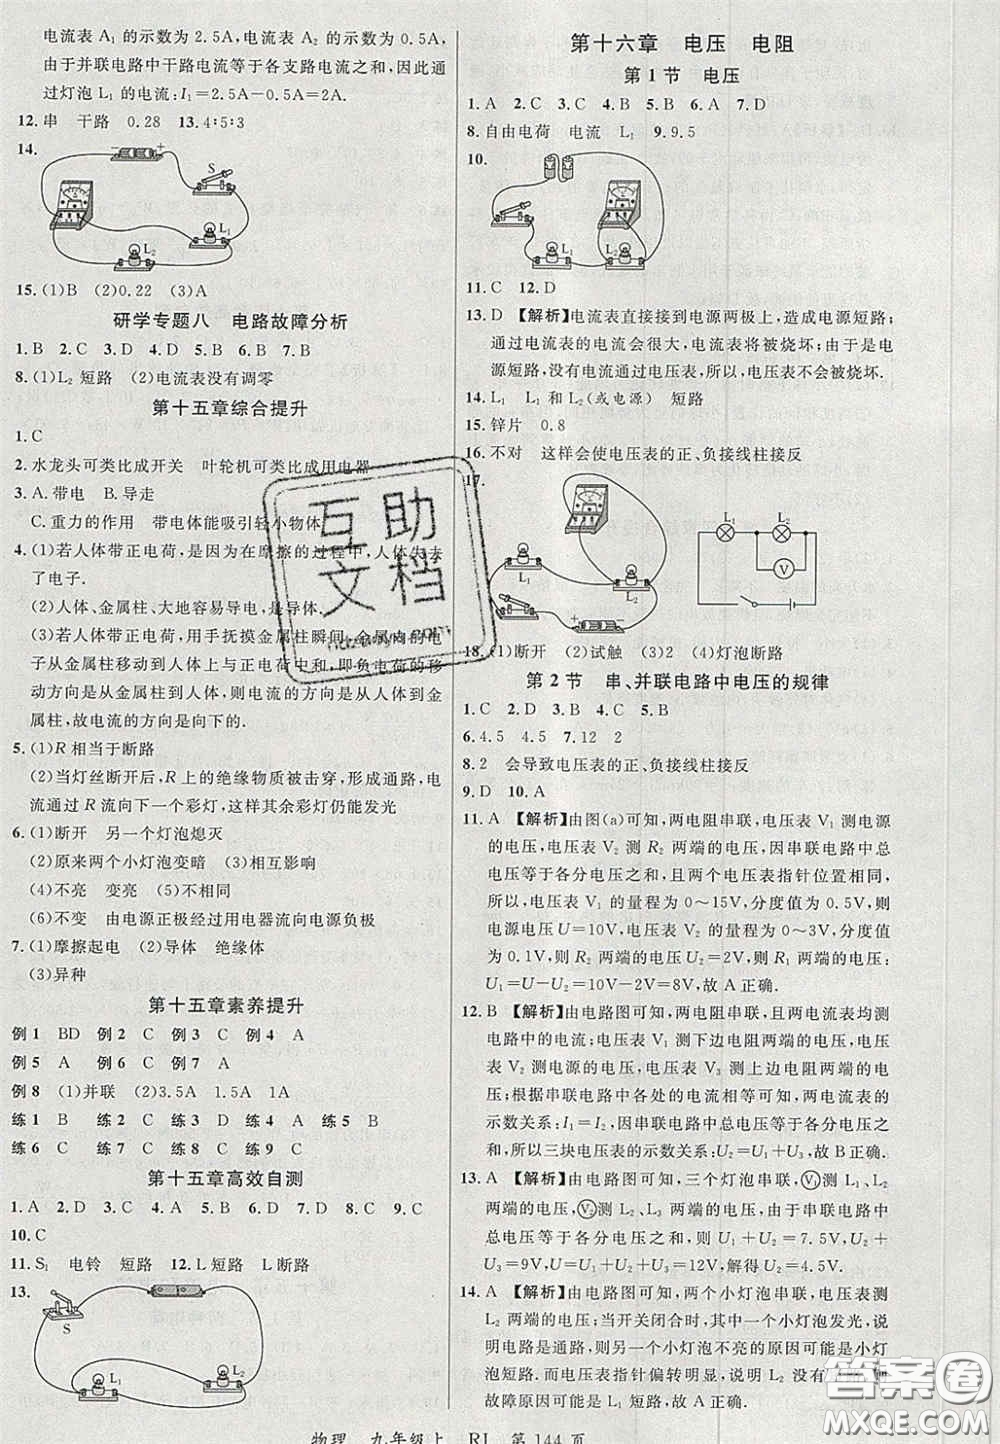 电流表 A₁ 的示数为 2.5A,电流表 A₂ 的示数为 0.5A,
由于并联电路中干路电流等于各支路电流之和,因此通
过灯泡 L₁ 的电流:I₁=2.5A-0.5A=2A.
12.串 干路 0.28 13.4∶5∶3
14.
S
L₁
L₂
15.(1)B (2)0.22 (3)A
研学专题八 电路故障分析
1.B 2.C 3.D 4.D 5.B 6.B 7.B
8.(1)L₂ 短路 (2)电流表没有调零
第十五章综合提升
1.C
2.水龙头可类比成开关 叶轮机可类比成用电器
3.A.带电 B.导走
C.重力的作用 带电体能吸引轻小物体
4.(1)若人体带正电荷,是因为在摩擦的过程中,人体失去
了电子.
(2)人体、金属柱、大地容易导电,是导体.
(3)若人体带正电荷,用手抚摸金属柱瞬间,金属体的电
子从金属柱移动到人体上与正电荷中和,即负电荷的移
动方向是从金属柱到人体,则电流的方向是从人体到金
属柱,故电流的方向是向下的.
5.(1)R 相当于断路
(2)当灯丝断开后,R 上的绝缘物质被击穿,形成通路,电
流通过 R 流向下一个彩灯,这样其余彩灯仍能发光
6.(1)断开 另一个灯泡熄灭
(2)原来两个小灯泡变暗 (3)相互影响
(4)不亮 变亮 (5)不相同
(6)不变 由电源正极经过用电器流向电源负极
7.(1)摩擦起电 (2)导体 绝缘体
(3)异种
第十五章素养提升
例 1 BD 例 2 C 例 3 C 例 4 A
例 5 A 例 6 C 例 7 A
例 8 (1)并联 (2)3.5A 1.5A 1A
练 1 B 练 2 C 练 3 D 练 4 A 练 5 B
练 6 C 练 7 C 练 8 C 练 9 C
第十五章高效自测
1.A 2.D 3.C 4.A 5.B 6.D 7.A 8.C 9.C
10.C
11.S₁ 电铃 短路 12.L 短路 L 断路
13.
S
L₁
L₂
第十六章 电压 电阻
第 1 节 电压
1.A 2.C 3.C 4.B 5.B 6.A 7.D
8.自由电荷 电流 L₁ 9.9.5
10.
L₂
L₁
11.C 12.D
13.D 【解析】电流表直接接到电源两极上,造成电源短路;
通过电流表的电流会很大,电流表将被烧坏;由于是电
源短路,没有电流通过电压表,所以,电压表不会被烧坏.
14.L₁ L₁ 和 L₂(或电源) 短路
15.锌片 0.8
16.不对 这样会使电压表的正、负接线柱接反
17.
L₂
L₁
L₁ L₂
V
18.(1)断开 (2)试触 (3)2 (4)灯泡断路
第 2 节 串、并联电路中电压的规律
1.C 2.D 3.B 4.C 5.B
6.4.5 4.5 7.12 2
8.2 会导致电压表的正、负接线柱接反
9.D 10.A
11.A 【解析】由图(a)可知,两电阻串联,电压表 V₁ 测电源
的电压,电压表 V₂ 测 R₂ 两端的电压,因串联电路中总
电压等于各分电压之和,且两电压表指针位置相同,
所以,电压表 V₁ 的量程为 0～15V,分度值为 0.5V,则
电源的电压 U=10V,电压表 V₂ 的量程为 0～3V,分度值
为 0.1V,则 R₂ 两端的电压 U₂=2V,则 R₁ 两端的电压:
U₁=U-U₂=10V-2V=8V,故 A 正确.
12.B 【解析】由电路图可知,两电阻串联,且两电流表均测
电路中的电流;电压表 V₁ 测下边电阻两端的电压,电压
表 V₂ 测电源的电压,电压表 V₃ 测上边电阻两端的电
压;根据串联电路中各处的电流相等可知,两电流表的
示数关系:I₁=I₂;根据串联电路中总电压等于各分电压之
和可知,所以三块电压表的示数关系:U₂=U₁+U₃,故 B 正确.
13.A 【解析】由电路图可知,三个灯泡串联,V₁测 L₁、L₂
两端的电压,V₂测 L₂、L₃ 两端的电压,由于串联电路中
总电压等于各部分电压之和,则 U₁+U₂=7.5V,U₂+
U₃=9V,U₁+U₂+U₃=12V,解得 U₂=4.5V,故 A 正确.
14.A 【解析】由电路图可知,两个小灯泡串联,电压表测
L₂ 两端的电压;当开关闭合时,其中一个小灯泡发光,说
明电路是通路,则小灯泡不亮的原因可能是其中一个小灯
泡短路.而电压表指针偏转明显,说明 L₂ 没有
故障原因可能是 L₁ 短路,故 A 正确.
物理 九年级上 RJ 第 144 页
互助文档
答案圈
MXQE.COM